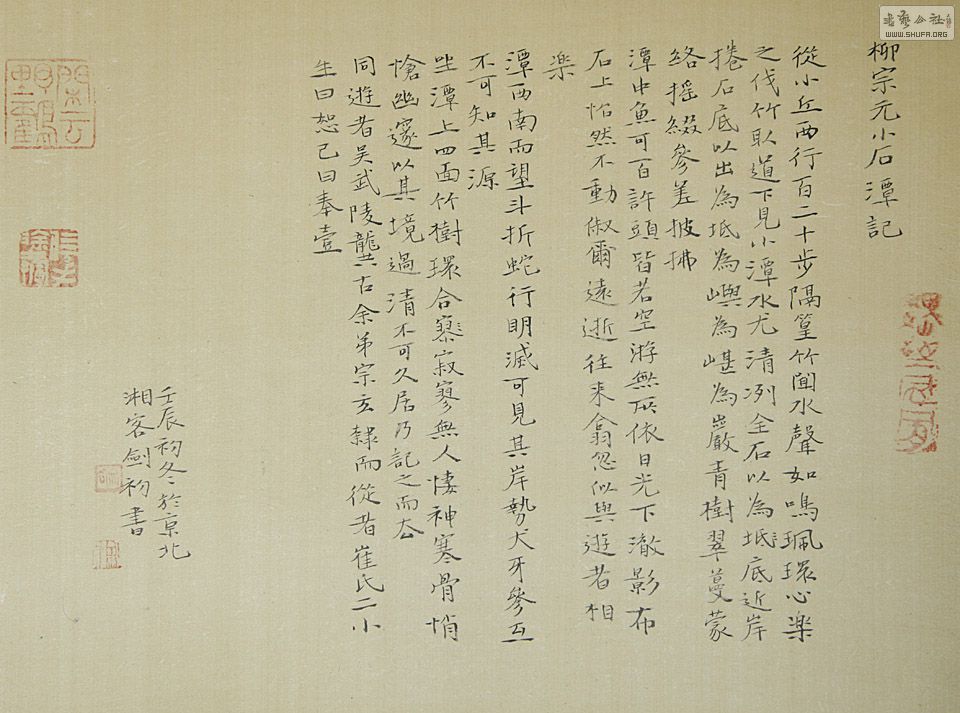 柳宗元小石潭記
從小丘西行百二十步隔篁竹聞水聲如鳴珮環心樂
之伐竹取道下見小潭水尤清冽全石以為坻底近岸
捲石底以出為坻為嶼為嵁為巖青樹翠蔓蒙
絡搖綴參差披拂
潭中魚可百許頭皆若空游無所依日光下澈影布
石上怡然不動俶爾遠逝往來翕忽似與遊者相
樂
潭西南而望斗折蛇行明滅可見其岸勢犬牙參互
不可知其源
坐潭上四面竹樹環合寥寂寥無人悽神寒骨悄
愴幽邃以其境過清不可久居乃記之而去
同遊者吳武陵龔古余弟宗玄隸而從者崔氏二小
生曰恕己曰奉壹
壬辰初冬於京北
湘客劍初書
閑雲野鶴
書藝公社
WWW.SHUFA.ORG